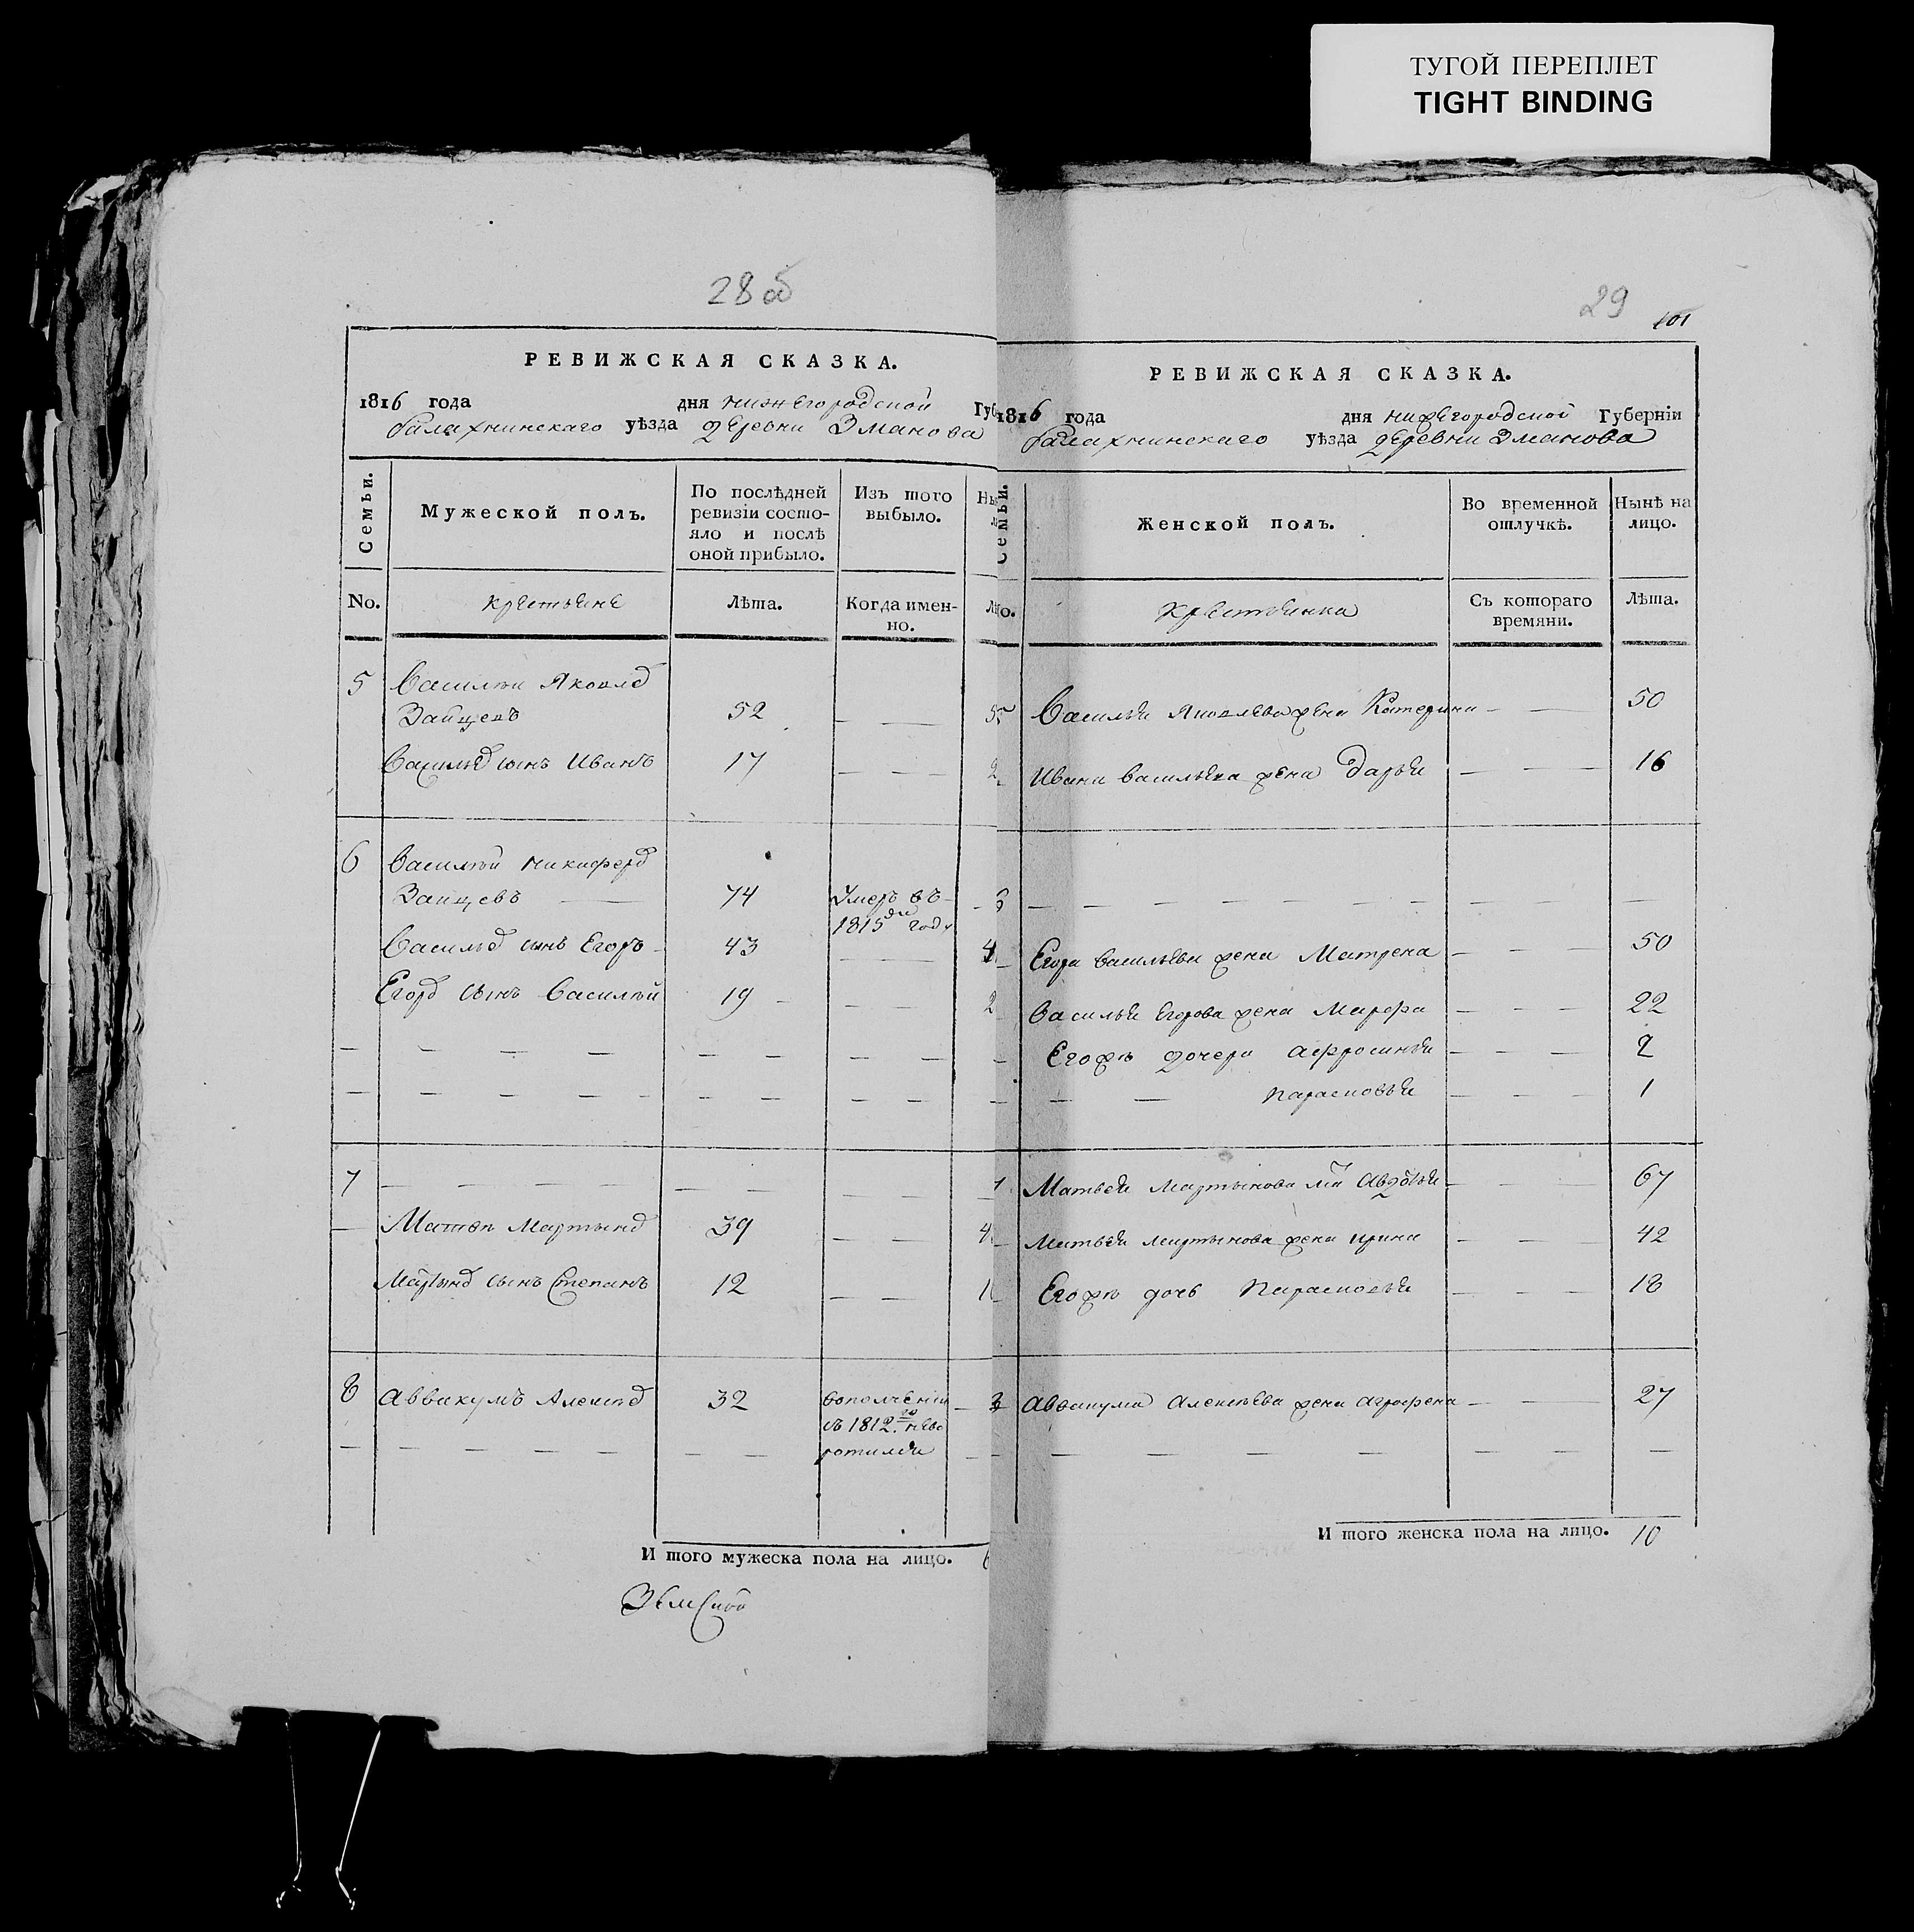 ТУГОЙ ПЕРЕПЛЕТ
TIGHT BINDING
28 об
РЕВИЖСКАЯ СКАЗКА.
1816 года дня нижегородской Губ
балахнинскаго уѣзда деревни Эманова
Семьи.
Мужеской полъ.
По послѣдней ревизіи состояло и послѣ оной прибыло.
Изъ того выбыло.
No.
крестьяне
Лѣта.
Когда имен-
но.
5 Василеи Яковлев
Зайцевъ 52 — —
Васильев сынъ Иванъ 17 — —
6 Василѣй никифоров
Заицевъ — 74 Умеръ въ
1815 году
Васильев сынъ Егоръ 43 —
Егоров сынъ Василѣй 19 — —
7 — — — —
Матвѣи Мартынов 39 — —
Мартынов сынъ Степанъ 12 — —
8 Аввакумъ Алексѣев 32 вополчении
съ 1812 го нево
ротился
И того мужеска пола на лицо. 6
Земской
29
101
РЕВИЖСКАЯ СКАЗКА.
1816 года дня нижегородской Губерніи
балахнинскаго уѣзда деревни Эманова
Семьи.
Женской полъ.
Во временной
отлучкѣ.
Нынѣ на
лицо.
No.
крестьянка
Съ котораго
времяни.
Лѣта.
5 Василья Яковлева жена Катерина — — 50
Ивана васильева жена Дарья — — 16
6 — — — —
Егора васильева жена Матрена — — 50
Василья Егорова жена Марфа — — 22
Егожъ дочери Афросинья — — 2
— — Парасковья — — 1
7 Матвея Мартынова мать Авдотья — — 67
Матвея мартынова жена ирина — — 42
Егожъ дочь Парасковья — — 18
8 Аввакума Алексѣева жена Аграфена — — 27
И того женска пола на лицо. 10